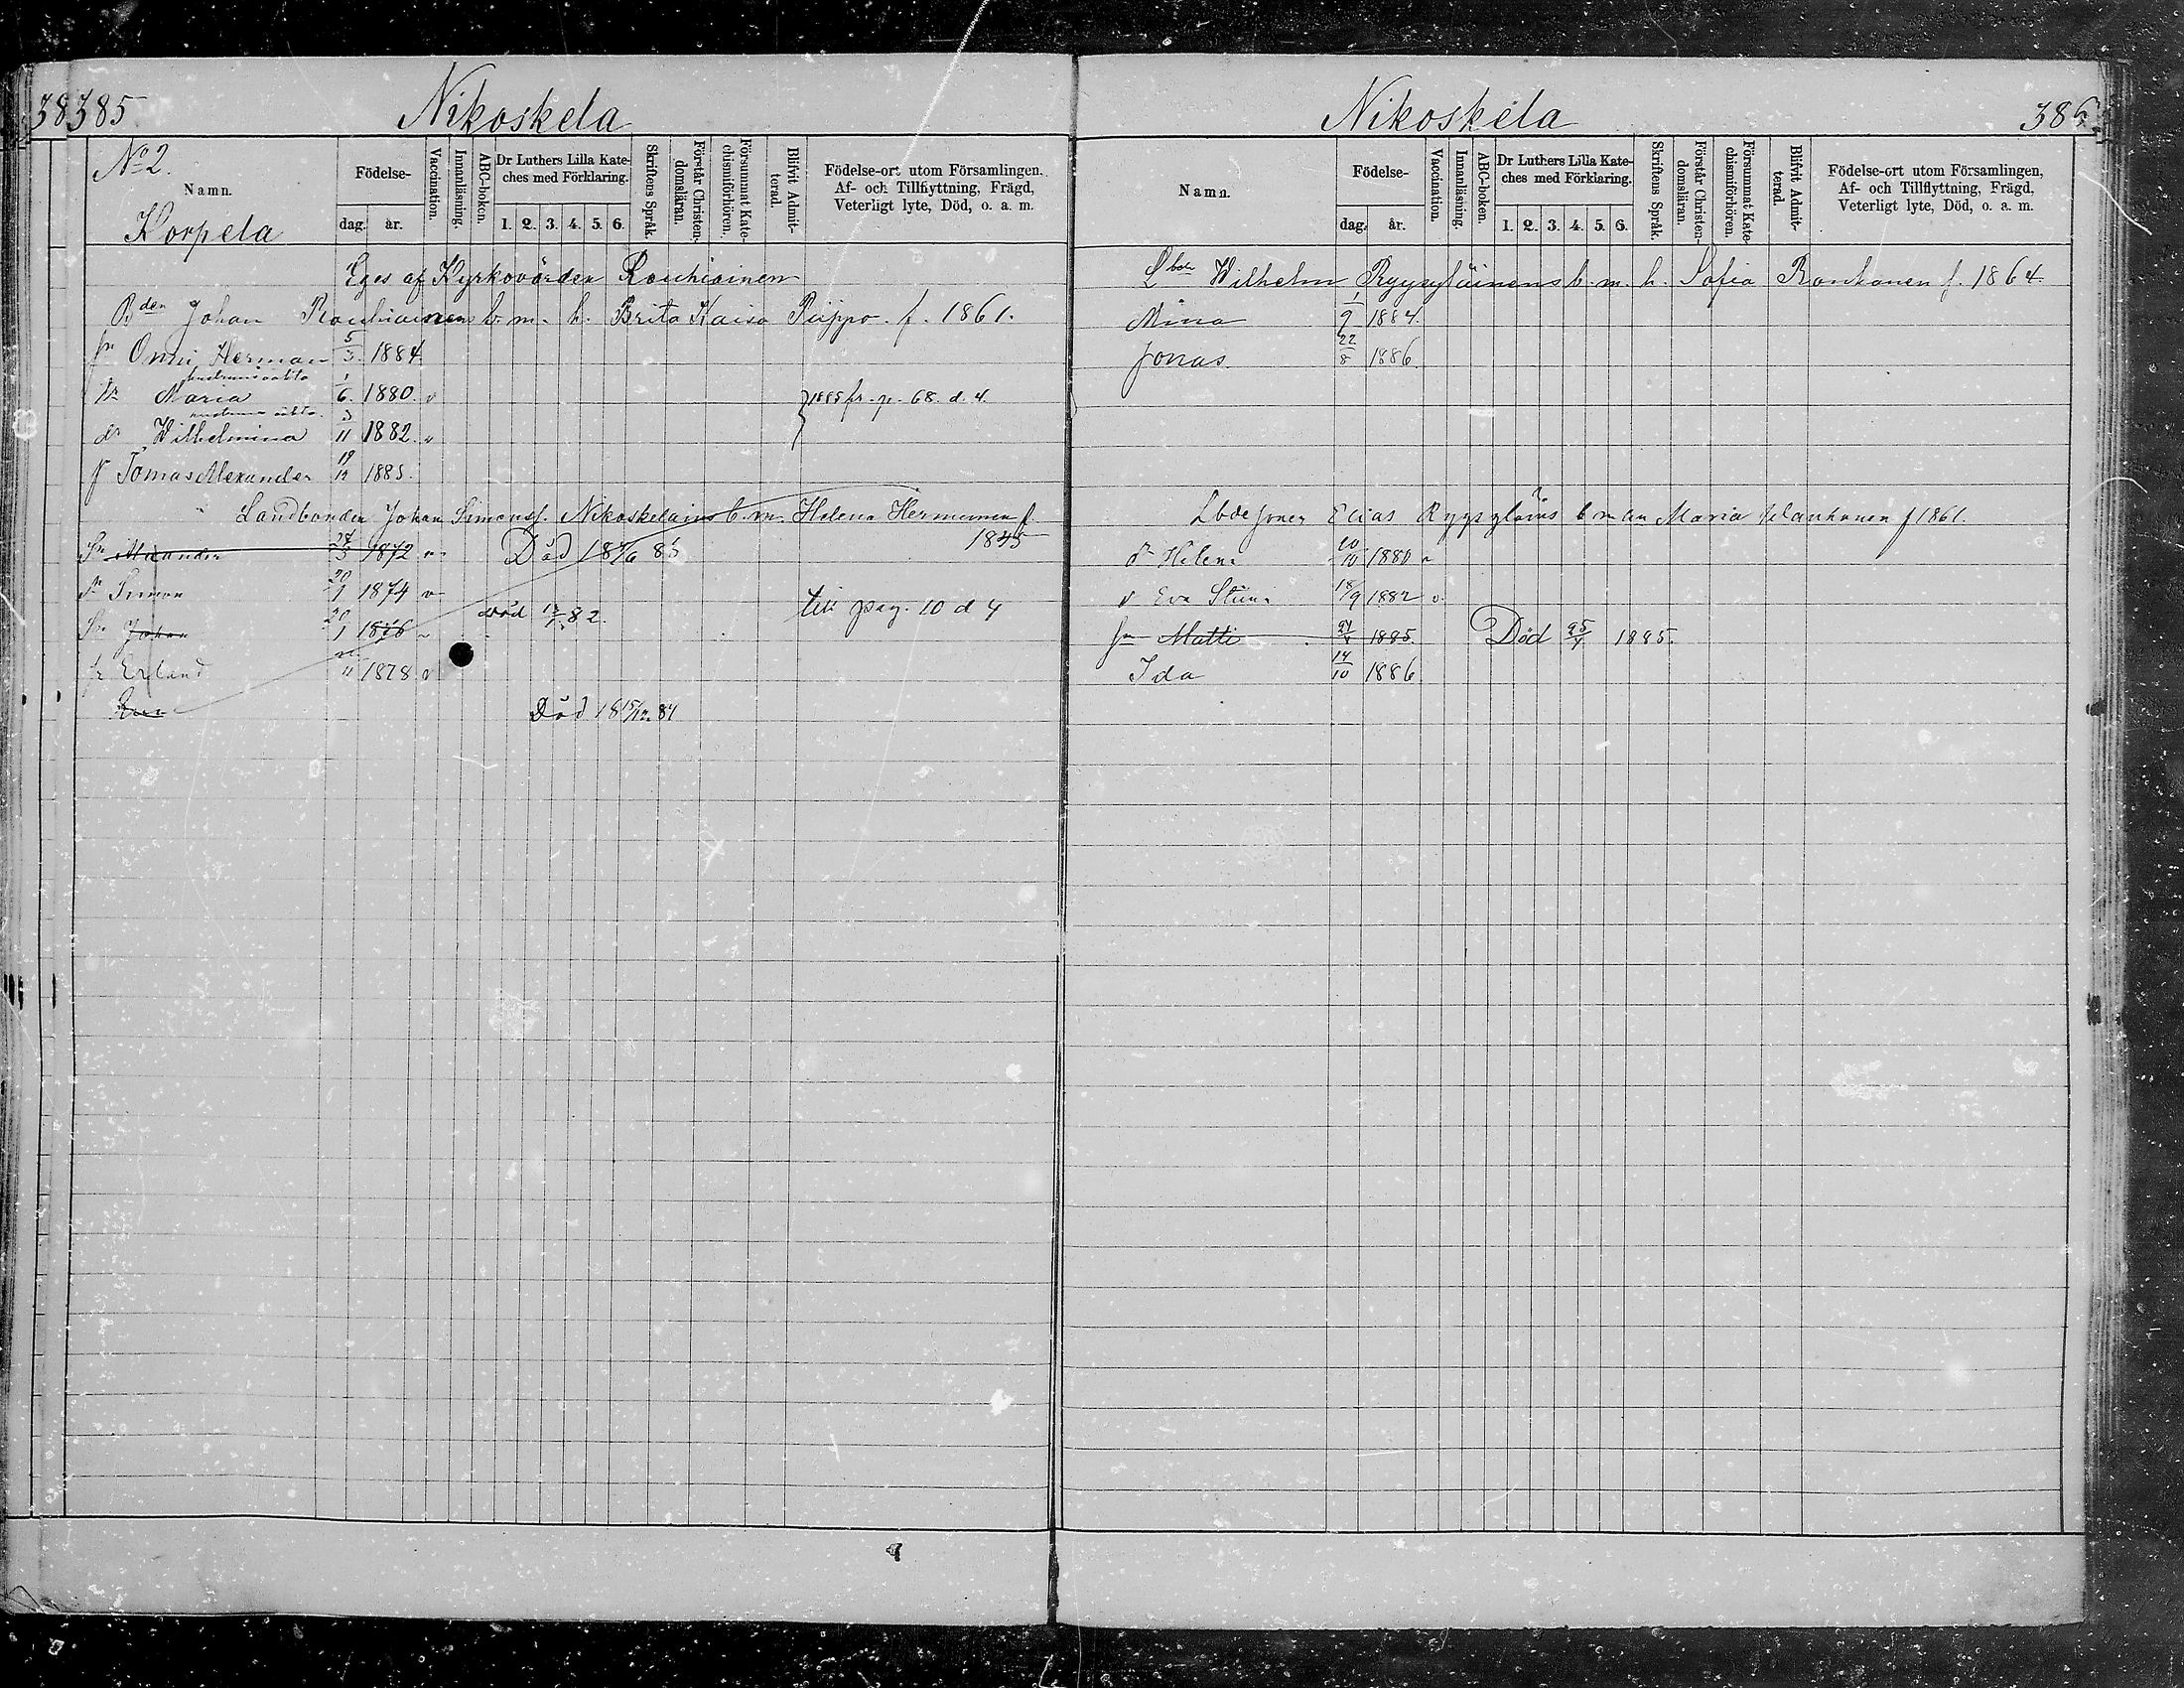 38 385 Nikoskela
No 2.
Namn.
Korpela
Födelse-
dag. år.
Vaccination.
Innanläsning.
ABC-boken.
Dr Luthers Lilla Kate-
ches med Förklaring.
1. 2. 3. 4. 5. 6.
Skriftens Språk.
Förstår Christen-
domsläran.
Försummat Kate-
chismiförhören.
Blifvit Admit-
terad.
Födelse-ort utom Församlingen.
Af- och Tillflyttning, Frägd,
Veterligt lyte, Död, o. a. m.
Eges af Kyrkovärden Rouhiainen
Bden Johan Rouhiainen b. m. h. Brita Kaisa Piippo f. 1861.
sn Onni Herman 5/3 1884
Maria 1/6 1880. v 1885 fr. p. 68. d. 4.
dr Wilhelmina 3/11 1882. v
Tomas Alexander 19/12 1885.
Landbonden Johan Simonss. Nikoskelains b. m. Helena Hermunen f.
1845
Sn Alexander 1872 v Död
Sn Simon 20/1 1874 v
Sn Johan 20/1 1876 v död 82. till pag. 10 d 4
Erland 1878 v
Död 1815/12 84
Nikoskela 386
Namn.
Födelse-
dag. år.
Vaccination.
Innanläsning.
ABC-boken.
Dr Luthers Lilla Kate-
ches med Förklaring.
1. 2. 3. 4. 5. 6.
Skriftens Språk.
Förstår Christen-
domsläran.
Försummat Kate-
chismiförhören.
Blifvit Admit-
terad.
Födelse-ort utom Församlingen,
Af- och Tillflyttning, Frägd,
Veterligt lyte, Död, o. a. m.
Lbde Wilhelm Ryysyläinens b. m. h. Sofia Ronkanen f. 1864.
Mina 1/9 1884.
Jonas 22/8 1886.
Elias b m an Maria f 1861.
dr Helena 20/10 1880 v
Eva Stiina 18/9 1882 v.
sn Matti 1885. Död 25/4 1885.
Ida 14/10 1886